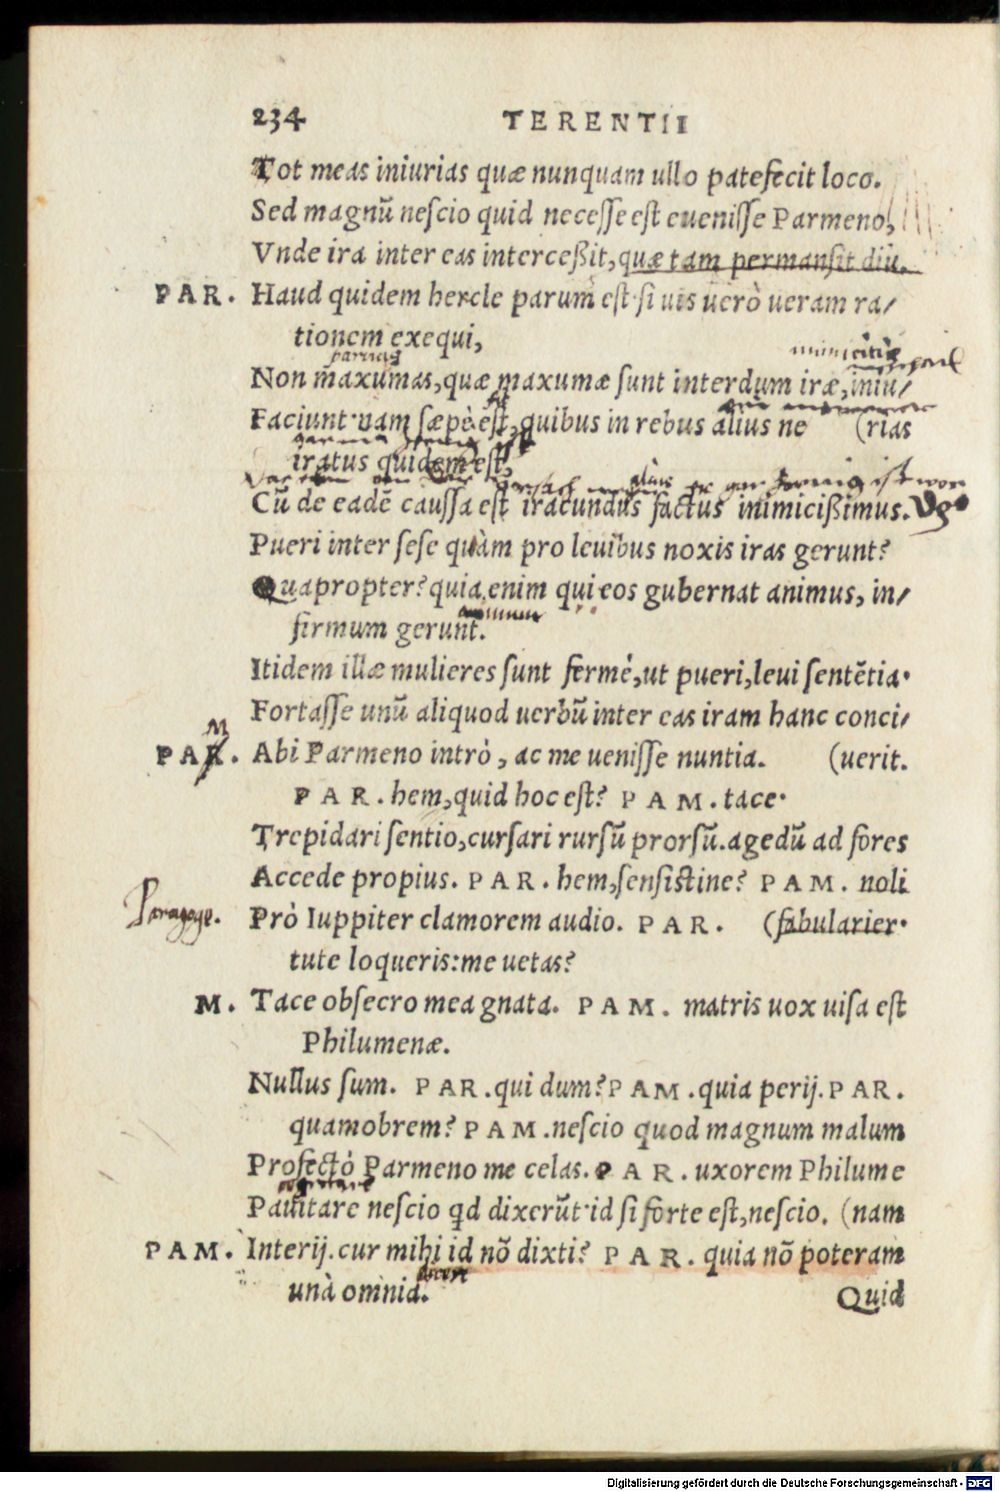 234 TERENTII
Tot meas iniurias quæ nunquam ullo patefecit loco.
Sed magnũ nescio quid necesse est euenisse Parmeno,
Vnde ira inter eas interceßit, quæ tam permansit diu.
PAR. Haud quidem hercle parum est. si uis uerò ueram ra/
tionem exequi,
Non maxumas, quæ maxumæ sunt interdum iræ, iniu/
Faciunt. nam sæpè est, quibus in rebus alius ne (rias
iratus quidem est,
Cũ de eadẽ caussa est iracundus factus inimicißimus.
Pueri inter sese quàm pro leuibus noxis iras gerunt?
Quapropter? quia enim qui eos gubernat animus, in/
firmum gerunt.
Itidem illæ mulieres sunt fermè, ut pueri, leui sentẽtia.
Fortasse unũ aliquod uerbũ inter eas iram hanc conci/
M
PAR. Abi Parmeno intrò, ac me uenisse nuntia. (uerit.
PAR. hem, quid hoc est? PAM. tace.
Trepidari sentio, cursari rursũ prorsũ. agedũ ad fores
Accede propius. PAR. hem, sensistine? PAM. noli
Paragoge. Prò Iuppiter clamorem audio. PAR. (fabularier.
tute loqueris: me uetas?
M. Tace obsecro mea gnata. PAM. matris uox uisa est
Philumenæ.
Nullus sum. PAR. qui dum? PAM. quia perij. PAR.
quamobrem? PAM. nescio quod magnum malum
Profectò Parmeno me celas. PAR. uxorem Philume
Pauitare nescio qd dixerũt. id si forte est, nescio. (nam
PAM. Interij. cur mihi id nõ dixti? PAR. quia nõ poteram
unà omnia.
Quid
Digitalisierung gefördert durch die Deutsche Forschungsgemeinschaft - DFG